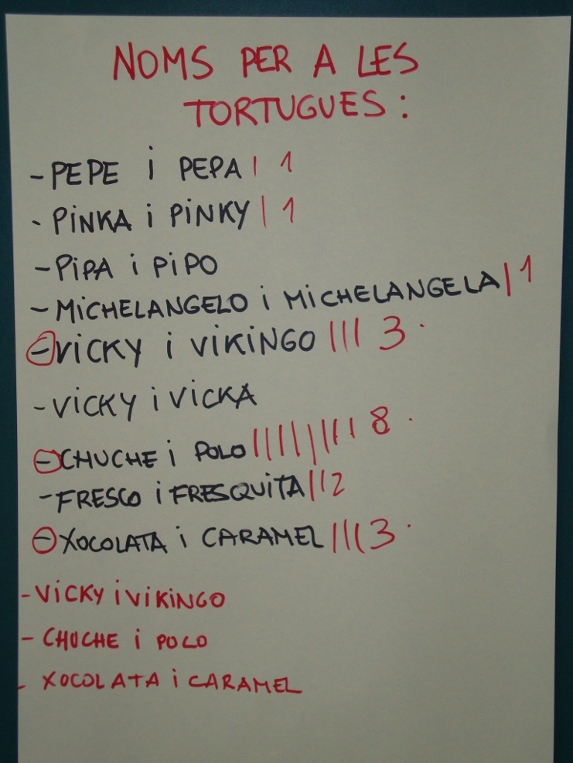 NOMS PER A LES
TORTUGUES:
- PEPE i PEPA | 1
- PINKA i PINKY | 1
- PIPA i PIPO
- MICHELANGELO i MICHELANGELA | 1
- VICKY i VIKINGO ||| 3.
- VICKY i VICKA
- CHUCHE i POLO |||||||| 8.
- FRESCO i FRESQUITA || 2
- XOCOLATA i CARAMEL ||| 3.
- VICKY i VIKINGO
- CHUCHE i POLO
- XOCOLATA i CARAMEL